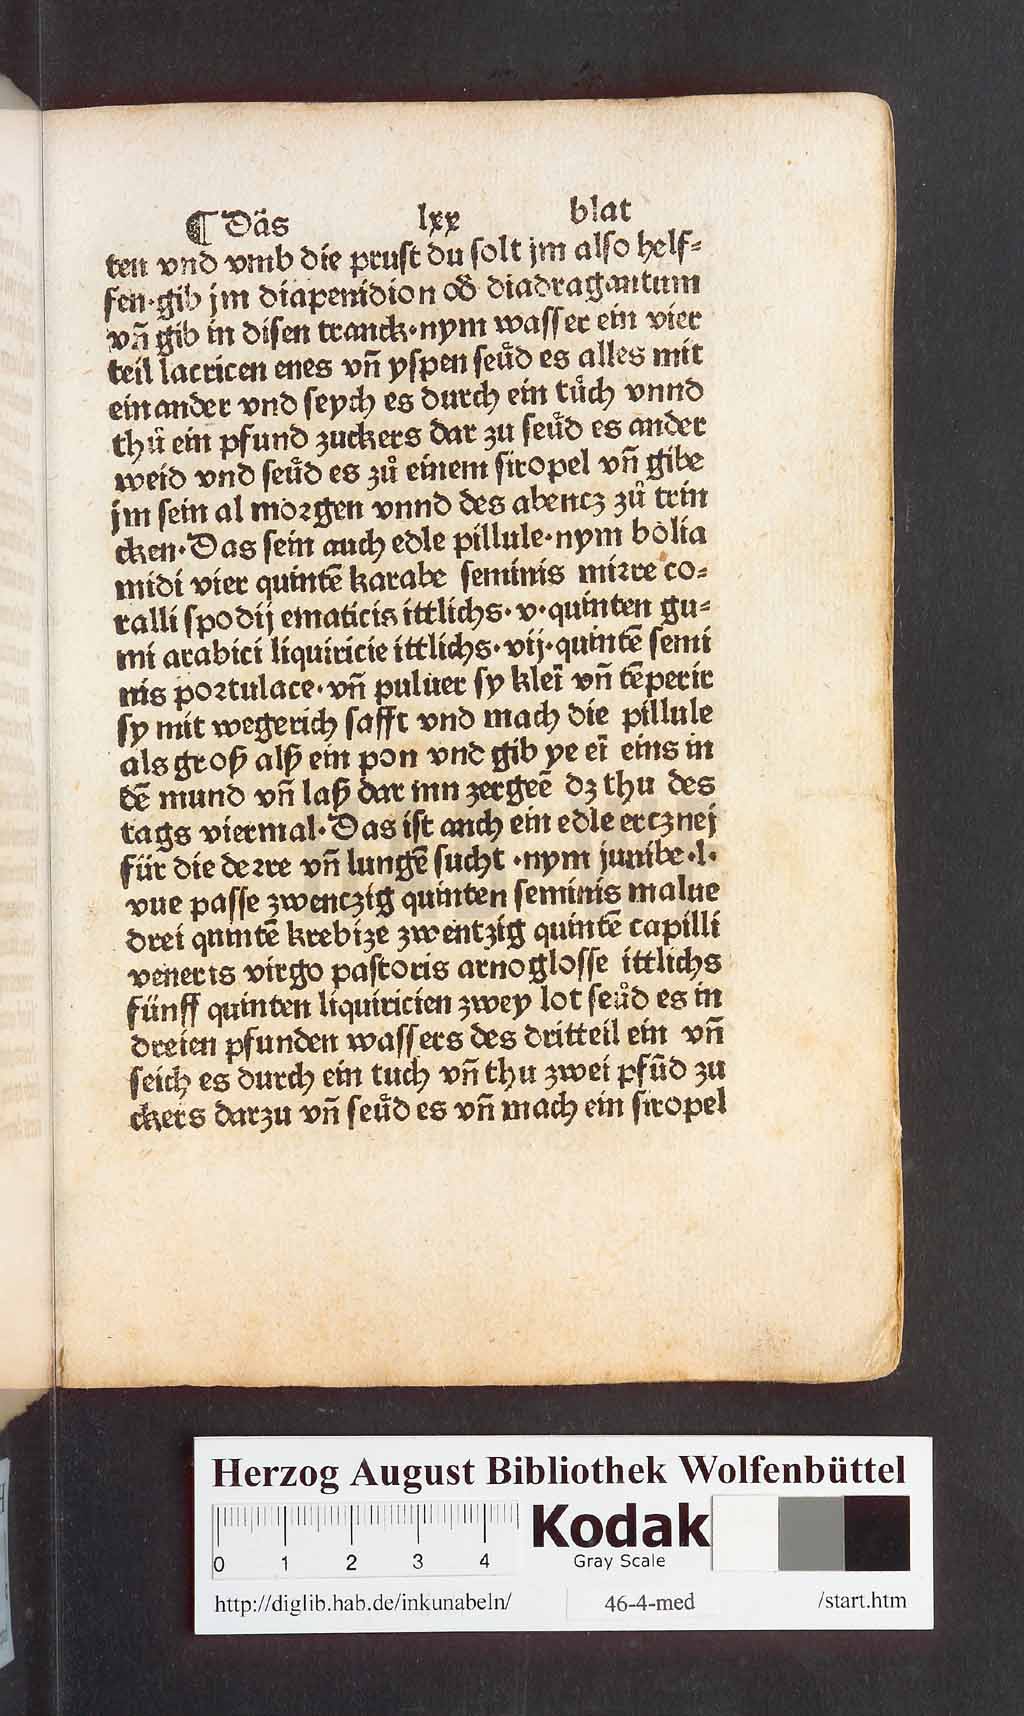 ¶ Das lxx blat
ten vnd vmb die prust du solt jm also helf⸗
fen·gib jm diapenidion od̾ diadragantum
vn̄ gib in disen tranck·nym wasser ein vier
teil lacricen enes vn̄ yspen seu̇d es alles mit
einander vnd seych es durch ein tůch vnnd
thů ein pfund zuckers dar zu seu̇d es ander
weid vnd seu̇d es zů einem siropel vn̄ gibe
jm sein al morgen vnnd des abencz zů trin
cken·Das sein auch edle pillule·nym bolia
midi vier quintē karabe seminis mirre co⸗
ralli spodij ematicis ittlichs·v·quinten gu⸗
mi arabici liquiricie ittlichs·vij·quintē semi
nis portulace·vn̄ puluer sy kleī vn̄ tēperir
sy mit wegerich safft vnd mach die pillule
als groß alß ein pon vnd gib ye eī eins in
dē mund vn̄ laß dar inn zergeē dz thu des
tags viermal·Das ist auch ein edle ercznej
für die derre vn̄ lungē sucht ·nym junibe·l·
vue passe zwenczig quinten seminis malue
drei quintē krebize zwentzig quintē capilli
veneris virgo pastoris arnoglosse ittlichs
fünff quinten liquiricien zwey lot seu̇d es in
dreien pfunden wassers des dritteil ein vn̄
seich es durch ein tuch vn̄ thu zwei pfūd zu
ckers darzu vn̄ seu̇d es vn̄ mach ein siropel
Herzog August Bibliothek Wolfenbüttel
0 1 2 3 4
Kodak
Gray Scale
http://diglib.hab.de/inkunabeln/ 46-4-med /start.htm